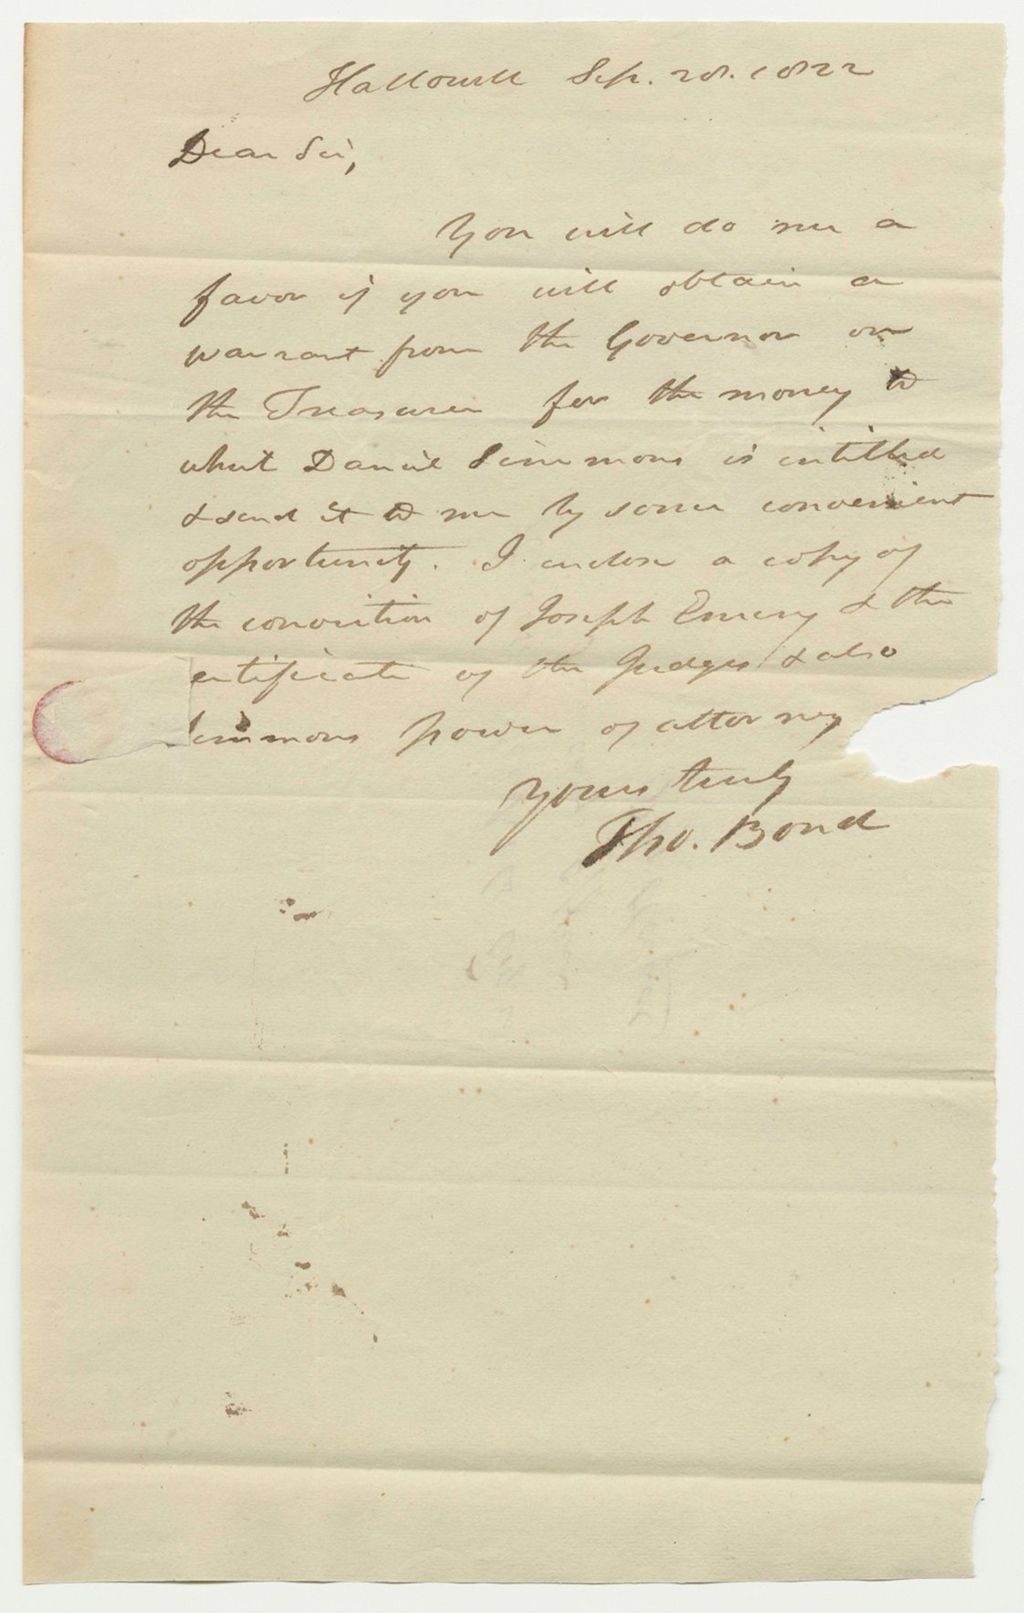 Hallowell Sep. 28. 1822
Dear Sir,
You will do me a
favor if you will obtain a
warrant from the Governor on
the Treasurer for the money to
what Daniel Simmons is intitled
& send it to me by some convenient
opportunity. I enclose a copy of
the conviction of Joseph Emery & the
ertificate of the Judges & also
Simmons power of attorney
Yours truly
Tho. Bond